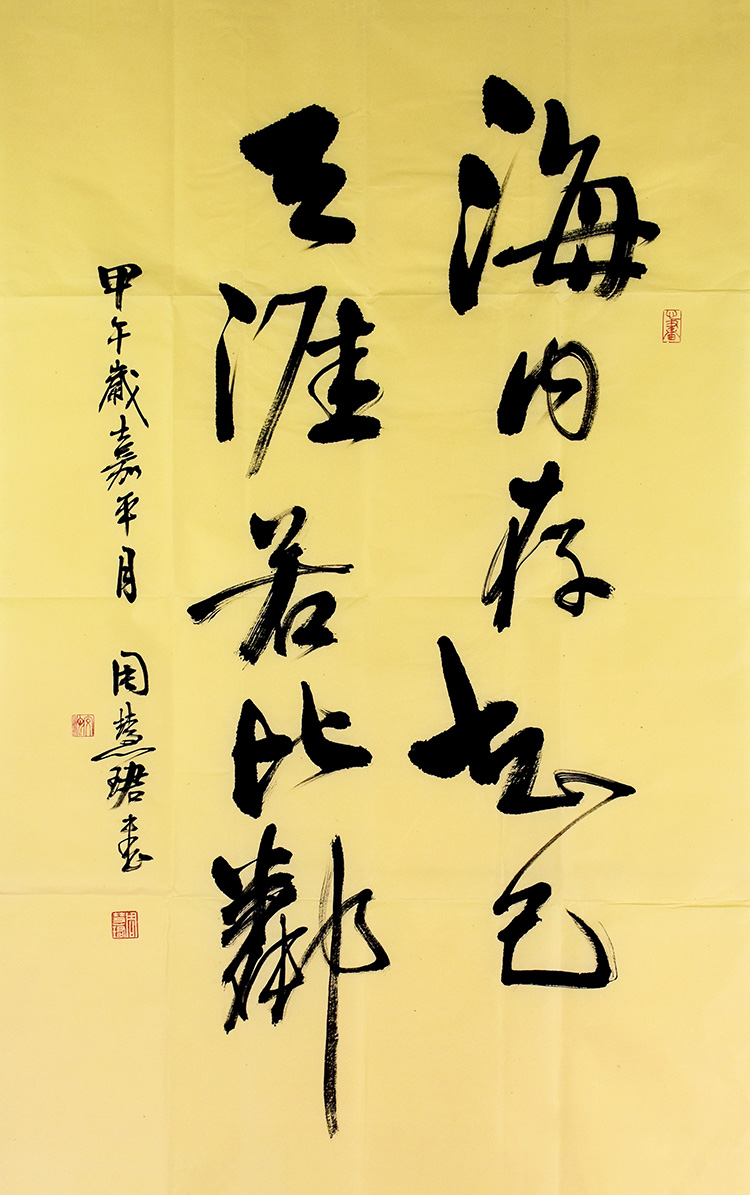 海内存知己
天涯若比鄰
甲午歲嘉平月 周慧珺書